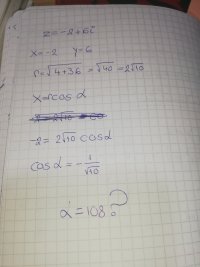 z = -2+6i
x=-2 y=6
r=√4+36 = √40 = 2√10
x=rcos α
-2= 2√10 cos α
cos α = - 1/√10
α = 108?